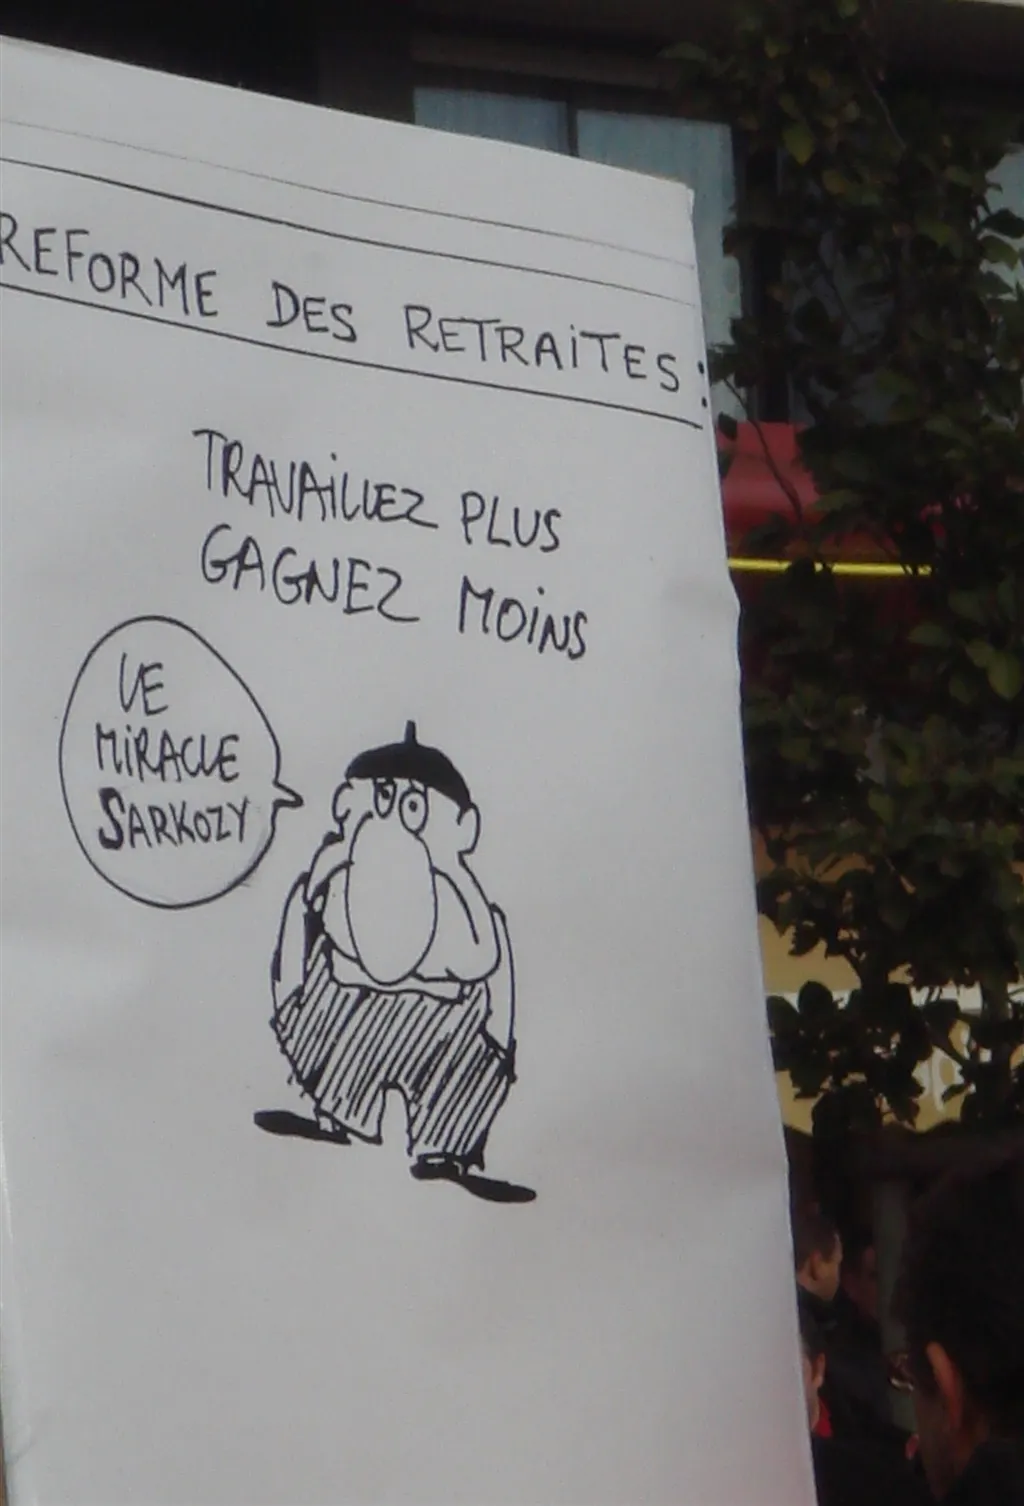 REFORME DES RETRAiTES :
TRAVAiLLEZ PLUS
GAGNEZ MOiNS
LE
MiRACLE
SARKOZY